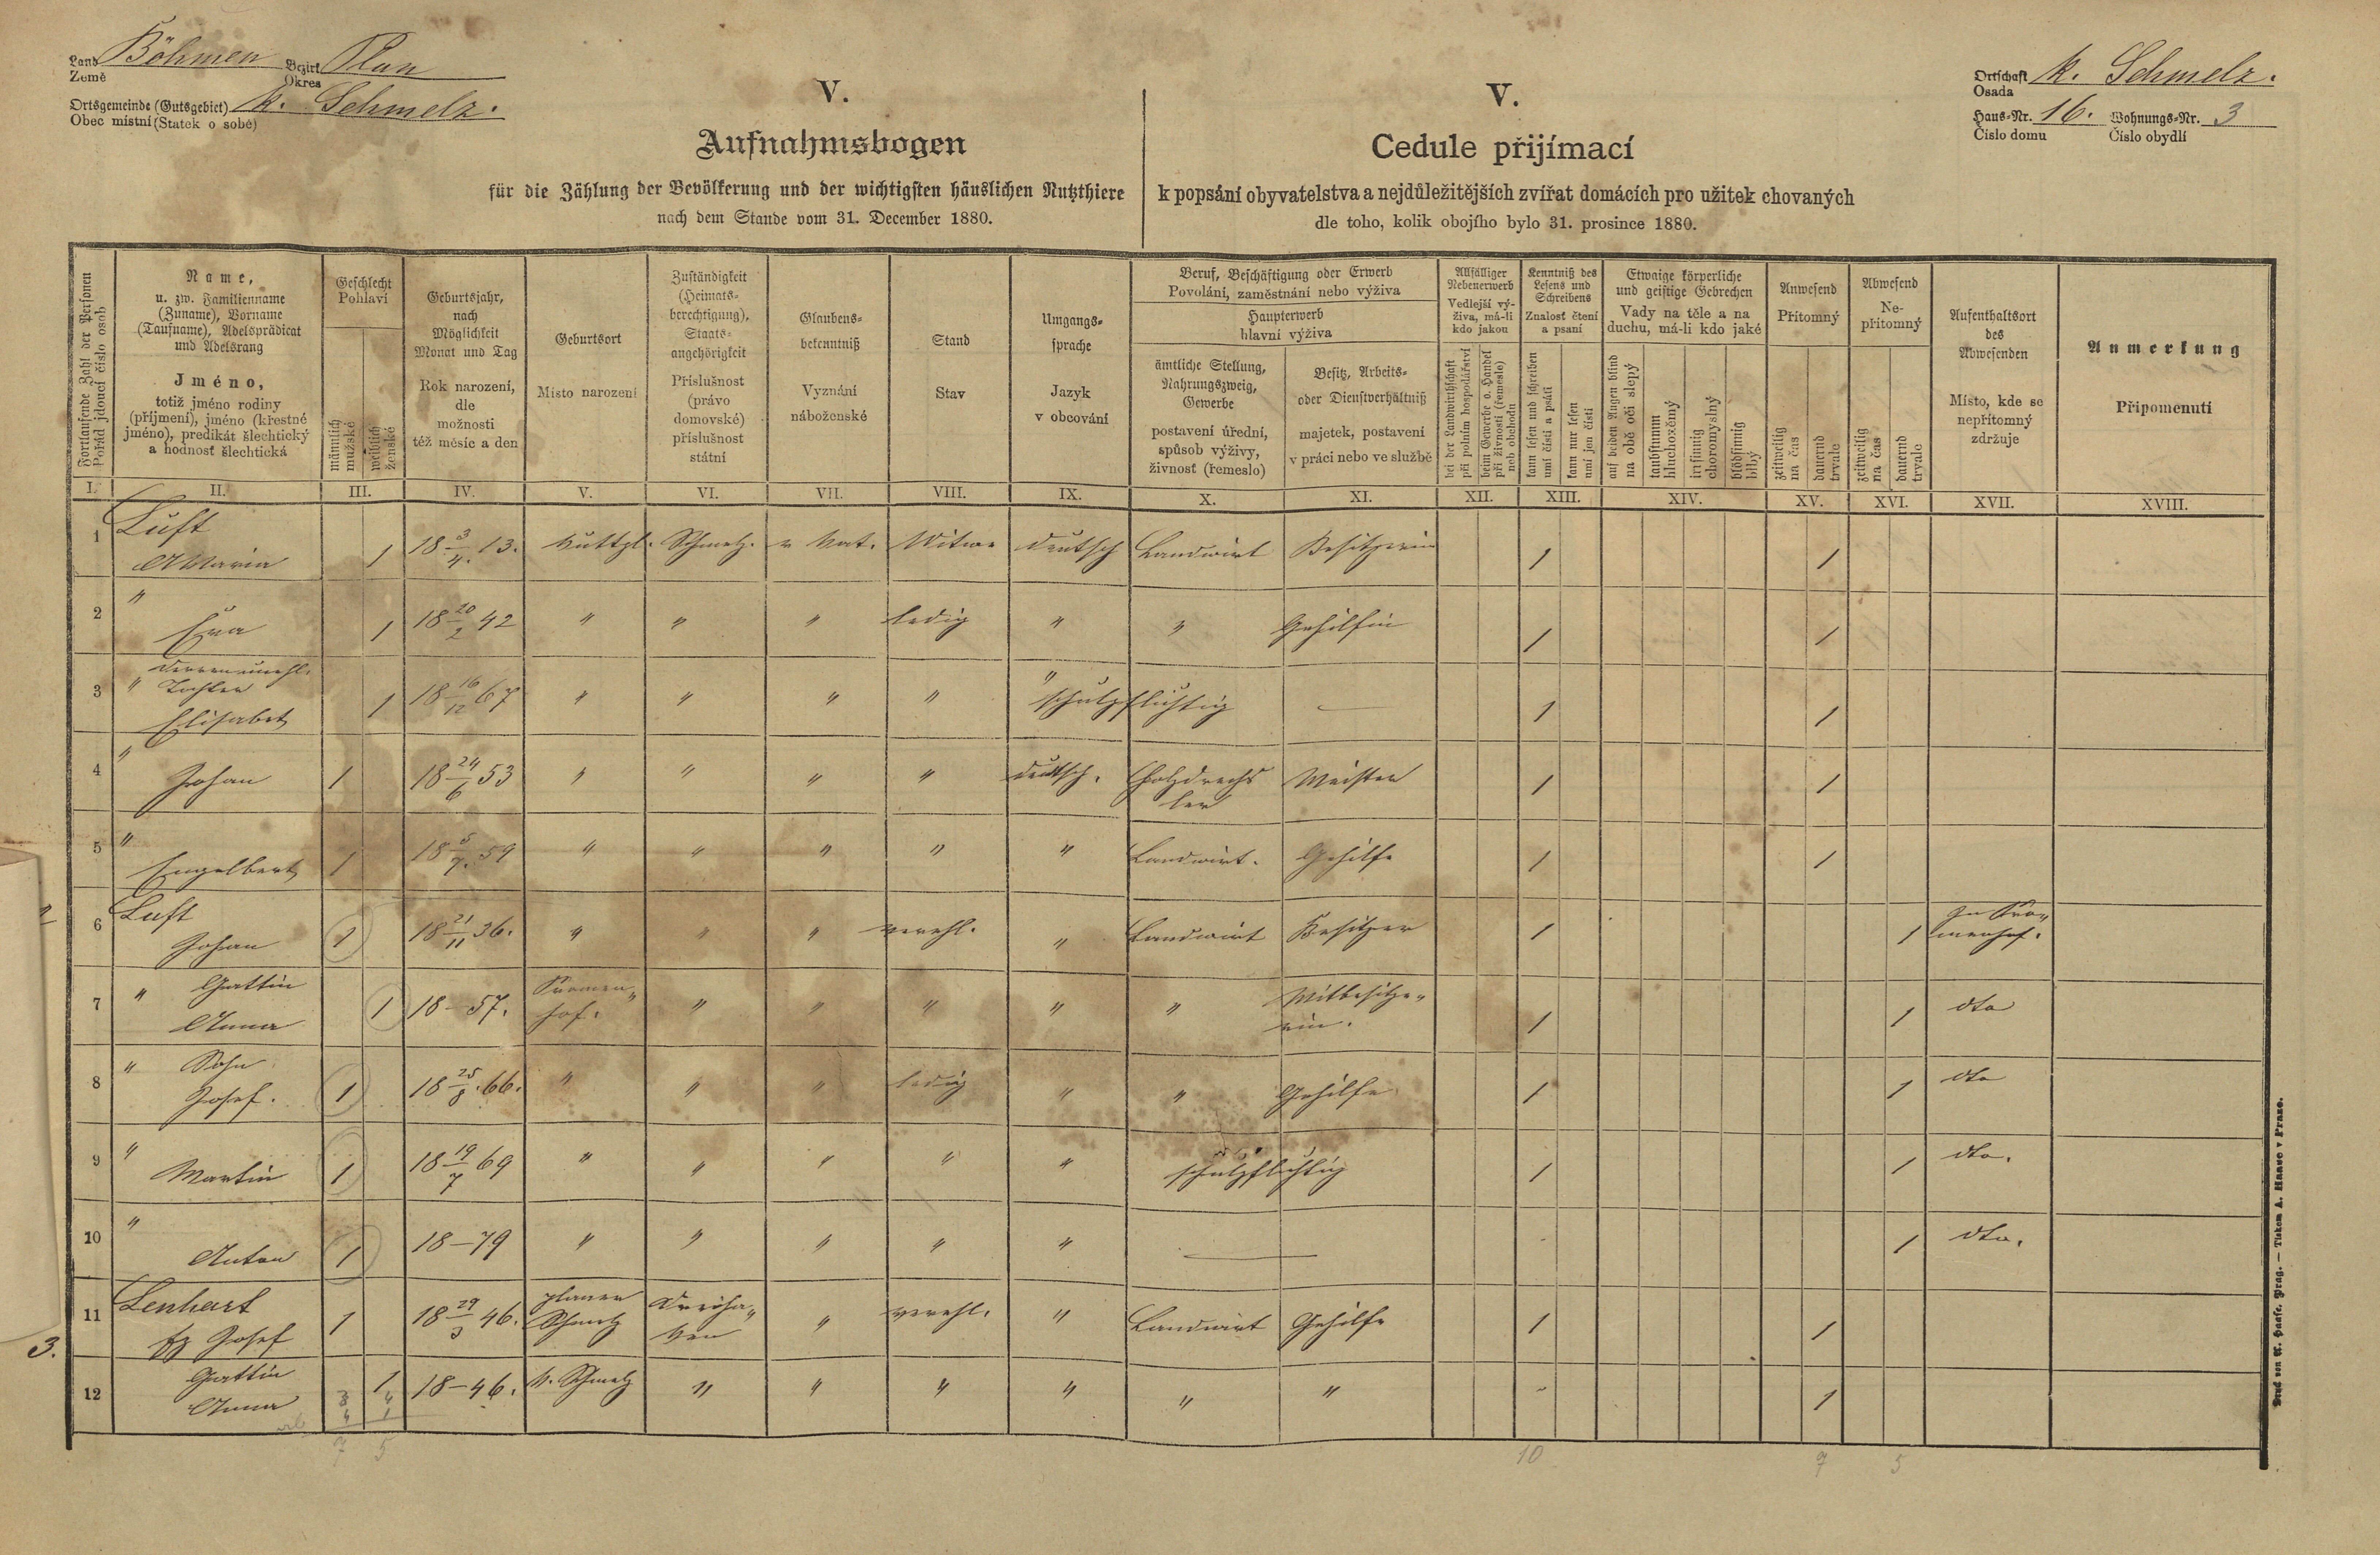 Land Böhmen Bezirk Plan
Země Okres
Ortsgemeinde (Gutsgebiet) k. Schmelz.
Obec místní (Statek o sobě)
Ortschaft k. Schmelz.
Osada
Haus-Nr. 16. Wohnungs-Nr. 3
Číslo domu Číslo obydlí
V.
Aufnahmsbogen
für die Zählung der Bevölkerung und der wichtigsten häuslichen Nutzthiere
nach dem Stande vom 31. December 1880.
V.
Cedule přijímací
k popsání obyvatelstva a nejdůležitějších zvířat domácích pro užitek chovaných
dle toho, kolik obojího bylo 31. prosince 1880.
Fortlaufende Zahl der Personen
Pořád jdoucí číslo osob
Name,
u. zw. Familienname
(Zuname), Vorname
(Taufname), Adelsprädicat
und Adelsrang
Jméno,
totiž jméno rodiny
(příjmení), jméno (křestné
jméno), predikát šlechtický
a hodnosť šlechtická
Geschlecht
Pohlaví
männlich
mužské
weiblich
ženské
Geburtsjahr,
nach
Möglichkeit
Monat und Tag
Rok narození,
dle
možnosti
též měsíc a den
Geburtsort
Místo narození
Zuständigkeit
(Heimats-
berechtigung),
Staats-
angehörigkeit
Příslušnost
(právo
domovské)
příslušnost
státní
Glaubens-
bekenntniß
Vyznání
náboženské
Stand
Stav
Umgangs-
sprache
Jazyk
v obcování
Beruf, Beschäftigung oder Erwerb
Povolání, zaměstnání nebo výživa
Haupterwerb
hlavní výživa
ämtliche Stellung,
Nahrungszweig,
Gewerbe
postavení úřední,
spůsob výživy,
živnosť (řemeslo)
Besitz, Arbeits-
oder Dienstverhältniß
majetek, postavení
v práci nebo ve službě
Allfälliger
Nebenerwerb
Vedlejší vý-
živa, má-li
kdo jakou
bei der Landwirthschaft
při polním hospodářství
beim Gewerbe o. Handel
při živnosti (řemesle)
neb obchodu
Kenntniß des
Lesens und
Schreibens
Znalosť čtení
a psaní
kann lesen und schreiben
umí čísti a psáti
kann nur lesen
umí jen čísti
Etwaige körperliche
und geistige Gebrechen
Vady na těle a na
duchu, má-li kdo jaké
auf beiden Augen blind
na obě oči slepý
taubstumm
hluchoněmý
irrsinnig
choromyslný
blödsinnig
blbý
Anwesend
Přítomný
zeitweilig
na čas
dauernd
trvale
Abwesend
Ne-
přítomný
zeitweilig
na čas
dauernd
trvale
Aufenthaltsort
des
Abwesenden
Místo, kde se
nepřítomný
zdržuje
Anmerkung
Připomenutí
I. II. III. IV. V. VI. VII. VIII. IX. X. XI. XII. XIII. XIV. XV. XVI. XVII. XVIII.
1 Luft
Maria 1 18 3/4. 13. Kuttpl. Schmelz. r Kat. Witwe deutsch Landwirt Besitzerin 1 1
2 "
Eva 1 18 20/2 42 " " " ledig " " Gehilfin 1 1
3 " Tochter
Elisabet 1 18 16/12 67 " " " " " schulpflichtig — 1 1
4 "
Johan 1 18 24/6 53 " " " " deutsch. Holzdrechs
ler Meister 1 1
5 "
Engelbert 1 18 5/7. 59 " " " " " Landwirt. Gehilfe 1 1
6 Luft
Johan 1 18 21/11 36. " " " verehl. " Landwirt Besitzer 1 1
7 " Gattin
Anna 1 18-57. " " " " " Mitbesitze"
rin. 1 1 dto
8 " Sohn
Josef. 1 18 25/8. 66. " " " ledig " " Gehilfe 1 1 dto
9 "
Martin 1 18 19/7 69 " " " " " schulpflichtig 1 1 dto.
10 "
Anton 1 18-79 " " " " " — 1 dto.
3.
11 Lenhart
Josef 1 18 29/3 46. planer
Schmelz Dreiha"
ken " verehl. " Landwirt Gehilfe 1 1
12 Gattin
Anna 1 18-46. k. Schmelz " " " " " " 1
5 10 5
Druck von A. Haase, Prag. — Tiskem A. Haase v Praze.